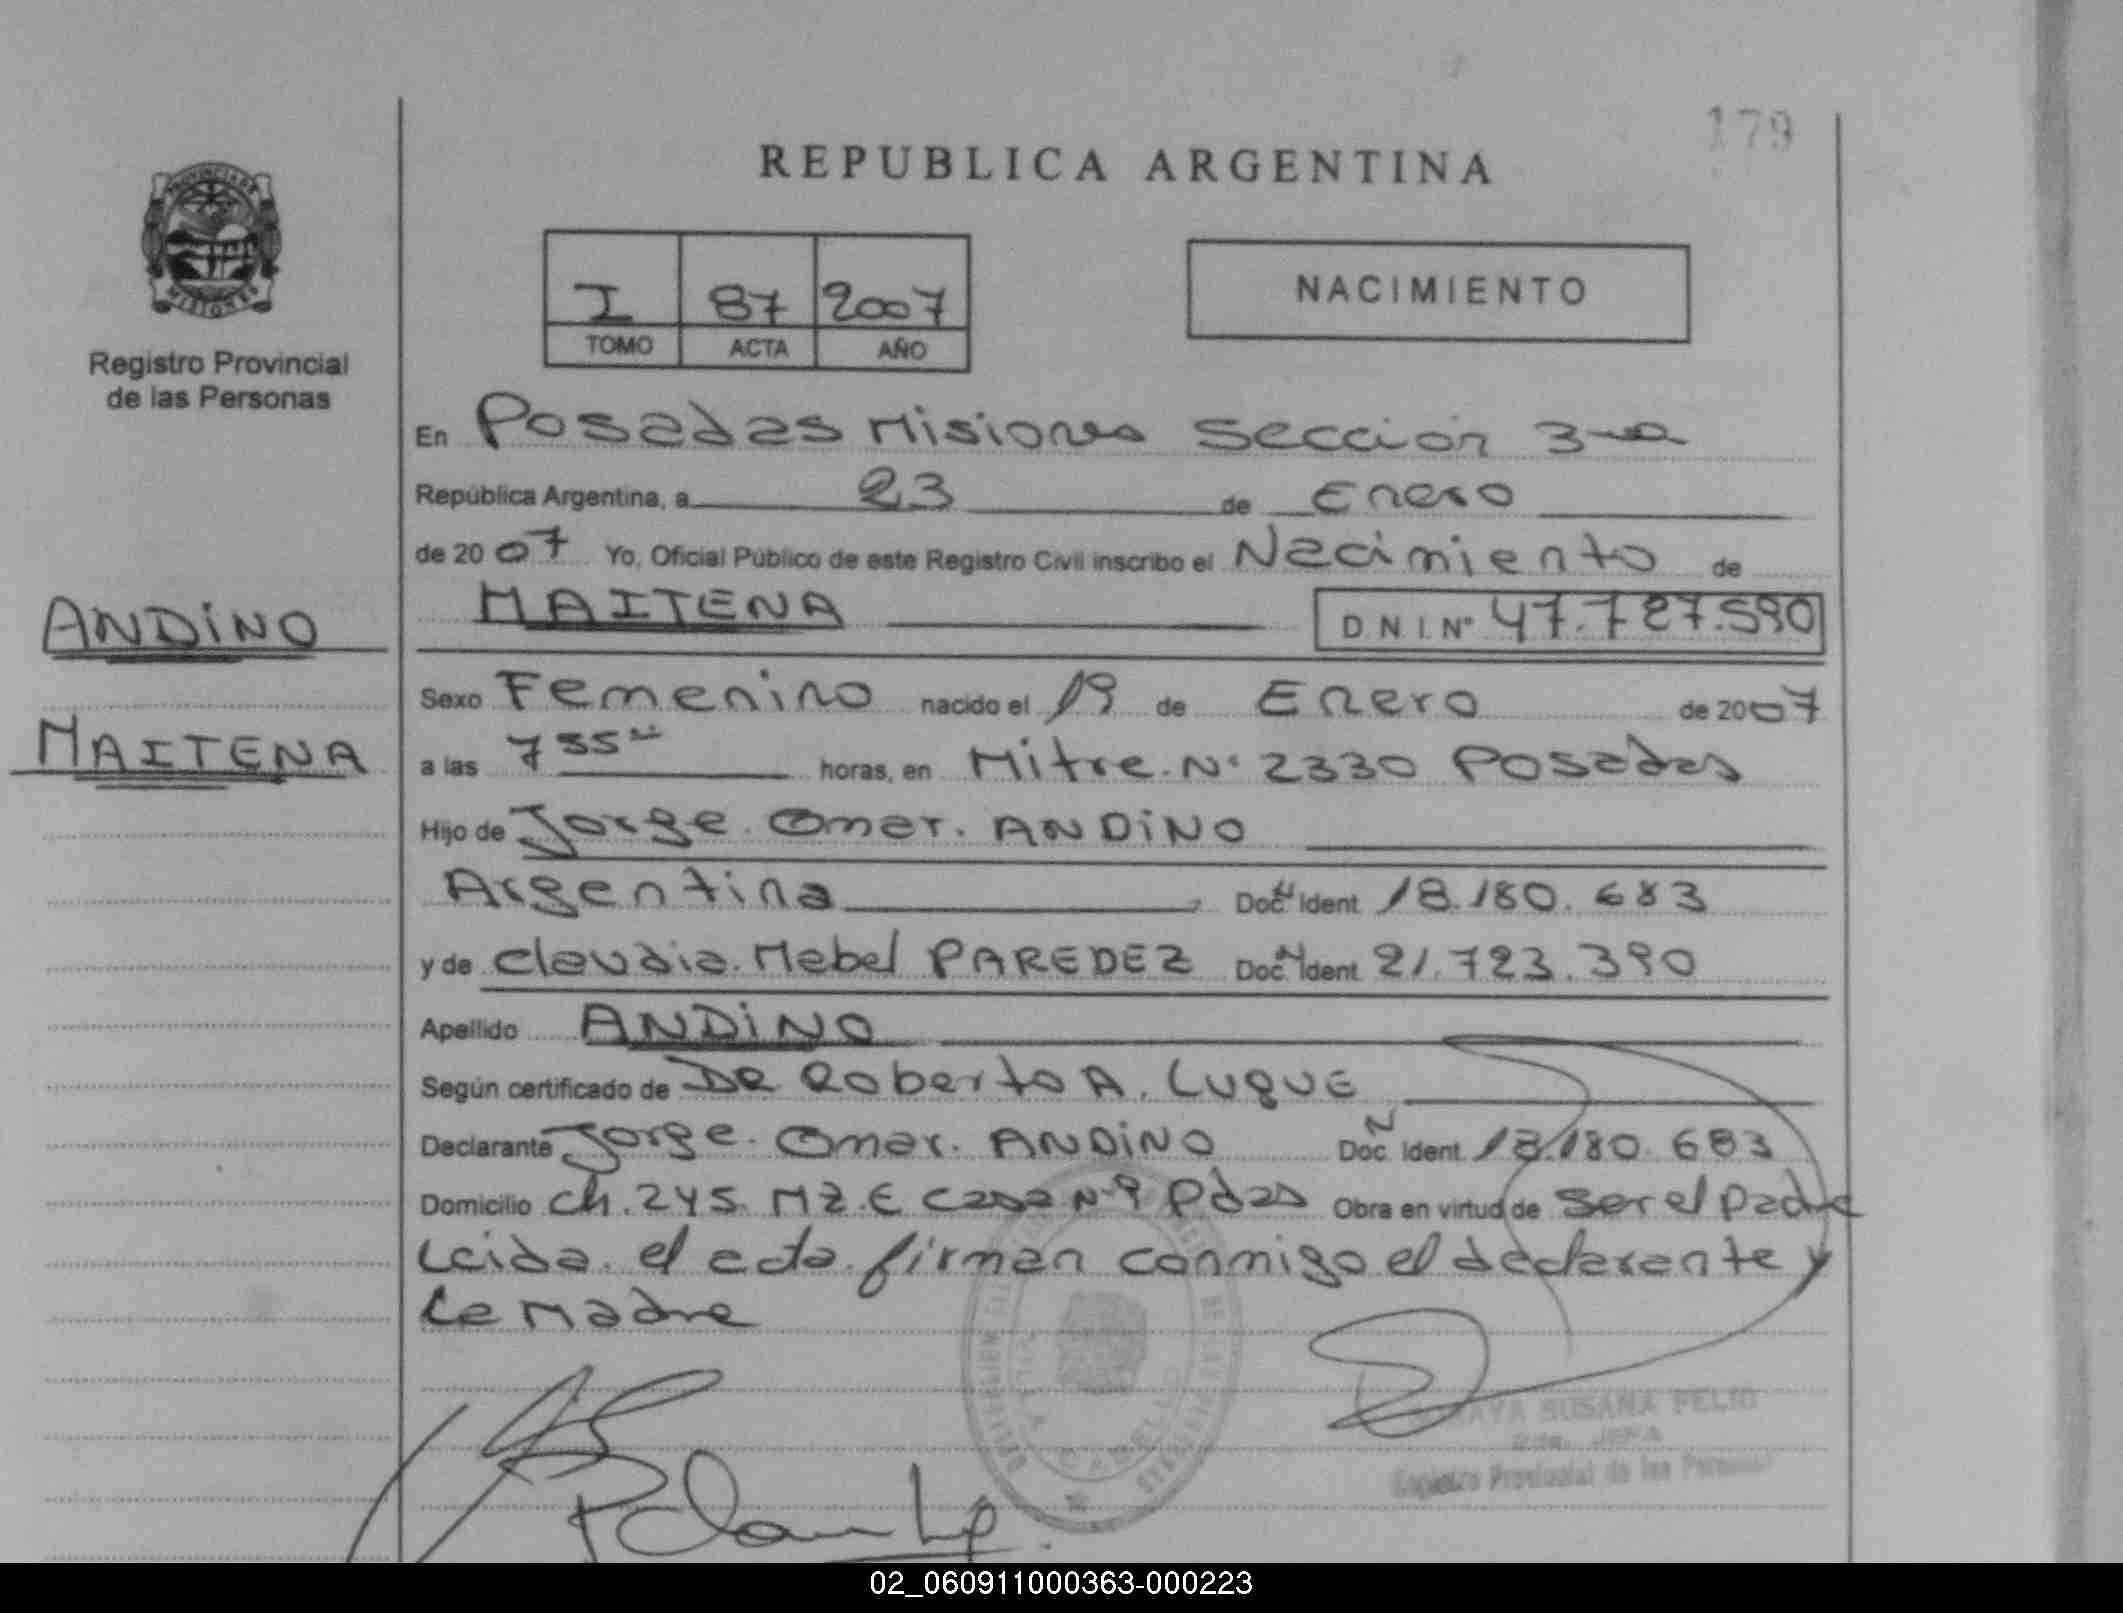 179
REPUBLICA ARGENTINA
PROVINCIA DE
MISIONES
Registro Provincial
de las Personas
I 87 2007
TOMO ACTA AÑO
NACIMIENTO
En Posadas Misiones Sección 3ra
República Argentina, a 23 de Enero
de 2007 Yo, Oficial Público de este Registro Civil inscribo el Nacimiento de
MAITENA D.N.I. Nº 47.727.590
ANDiNO
MAITENA
Sexo Femenino nacido el 19 de Enero de 2007
a las 7 55 horas, en Mitre. Nº 2330 Posadas
Hijo de Jorge. Omar. ANDiNO
Argentina Doc. N Ident 18.180.683
y de Claudia. Mabel PAREDEZ Doc. N Ident 21.723.390
Apellido ANDiNO
Según certificado de DR Roberto A. LUQUE
Declarante Jorge. Omar. ANDiNO Doc. N Ident 18.180.683
Domicilio Ch. 245. MZ. E Casa Nº 9 Pdas Obra en virtud de Ser el Padre
Leida. el acta. firman conmigo el declarante y
la Madre
VILLA CABELLO
SUSANA
JEFA
Registro Provincial de las Personas
02_060911000363-000223